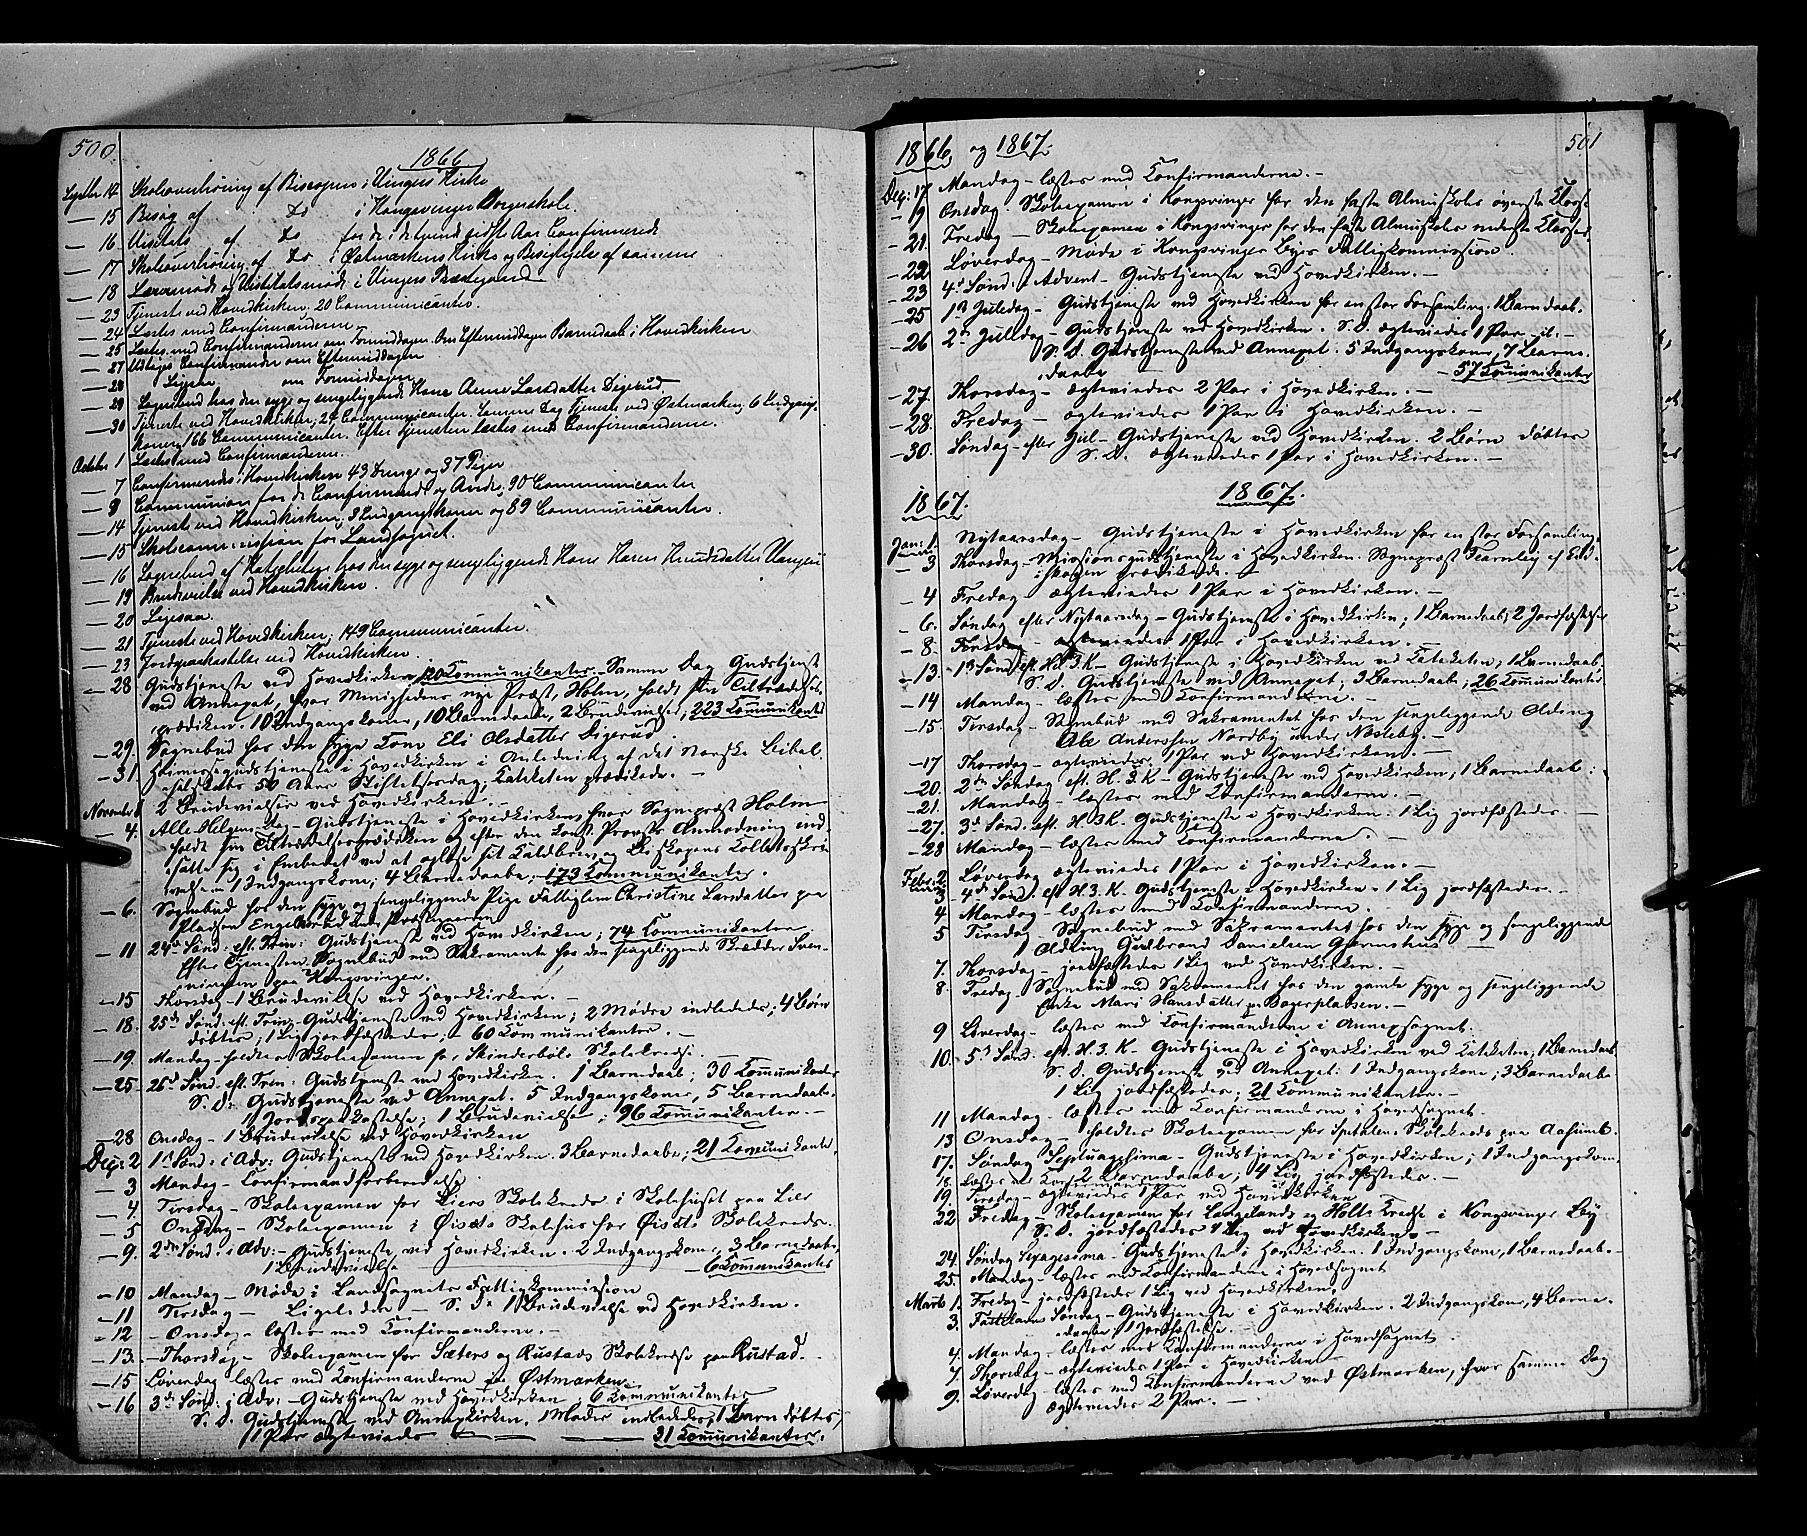 500.
1866
Septbr 14 Skoleoverhøring af Biscopen i Vingers Kirke
— 15 Besøg af Do i Kongsvingers Borgerskole.
— 16 Visitats af Do for de i det sidste Aar Confirmerede
— 17 Skoleoverhøring af Do i Østmarkens Kirke og Besigtigelse af samme
— 18 Læremøde og Visitatsmøde i Vingers Præstegaard
— 23 Tjeneste ved Hovedkirken; 20 Communicanter.
— 24 Læstes med Confirmanderne
— 25 Læstes med Confirmanderne om Formiddagen. Om Eftermiddagen Barnedaab i Hovedkirken
— 27 Confirmander om Eftermiddagen
— 28 Ligesaa om Formiddagen
— 29 Sognebud hos den syge og sengeliggende Kone Anne Larsdatter Digerud
— 30 Tjeneste ved Hovedkirken; 24 Communicanter. Samme Dag Tjeneste ved Østmarken; 6 Indgangs-
koner; 166 Communicanter. Efter Tjenesten læstes med Confirmanderne.
October 1 Læstes med Confirmanderne.
— 7 Confirmeredes i Hovedkirken 43 Drenge og 37 Piger
— 8 Communion for de Confirmerede og Andre; 90 Communicanter
— 14 Tjeneste ved Hovedkirken; 3 Indgangskoner og 89 Communicanter.
— 15 Skolecommission for Landsognet.
— 16 Sognebud af Katecheten hos den syge og sengeliggende Kone Karen Knudsdatter Vangen
— 19 Brudevielse ved Hovedkirken.
— 20 Ligesaa
— 21 Tjeneste ved Hovedkirken; 149 Communicanter.
— 23 Jordpaakastelse ved Hovedkirken.
— 28 Gudstjeneste ved Hovedkirken, 120 Kommunikanter. Samme Dag Gudstjenest
ved Annexet, hvor Menighedens nye Præst, Holm, holdt sin Tiltrædelses-
prædiken. 10 Indgangskoner, 10 Barnedaab, 2 Brudevielser, 223 Kommunikant
— 29 Sognebud hos den syge Kone Eli Olsdatter Digerud.
— 31 Høimessegudstjeneste i Hovedkirken i Anledning af det Norske Bibel-
selskabs 50 Aars Stiftelsesdag; Kateketen prædikede. —
November 2 Brudevielser ved Hovedkirken. —
— 4. Alle Helgens Dag — Gudstjeneste i Hovedkirken, hvor Sognepræst Holm
holdt sin Tiltrædelsesprædiken og efter den konst. Provsts Anmodning ind-
satte sig i Embedet ved at oplæse sit Kaldbrev og Biskopens Kollatsskri-
velse — 1 Indgangskone; 4 Barnedaab; 173 Kommunikanter.
— 6. Sognebud hos den syge og sengeliggende Pige Christine Larsdatter paa
Pladsen Engelaabraaten under Præstegaarden
— 11 24de Sønd: eft. Trin: Gudstjeneste ved Hovedkirken; 74 Kommunikanter.
Efter Tjenesten Sognebud med Sakramente hos den sengeliggende Skrædder Sven-
ningsen paa Kongsvinger.
— 15 Thorsdag — 1 Brudevielse ved Hovedkirken. —
— 18. 25de Sønd. eft. Trin. Gudstjeneste ved Hovedkirken; 2 Mødre indlededes; 4 Børn
døbtes; 1 Lig jordfæstedes; 60 Kommunikanter. —
— 19. Mandag — holdtes Skoleexamen for Skinderbøls Skolekreds.
— 25 26de Sønd. eft. Trin: Gudstjeneste ved Hovedkirken. 1 Barnedaab; 30 Kommunikanter
S. D. Gudstjeneste ved Annexet. 5 Indgangskoner, 5 Barnedaab.
1 Jordspaakastelse, 1 Brudevielse, 96 Kommunikanter. —
— 28 Onsdag — 1 Brudevielse ved Hovedkirken
Dec: 2 1ste Sønd. i Adv: Gudstjeneste ved Hovedkirken. 3 Barnedaab; 21 Kommunikanter
— 3 Mandag — Confirmandforberedelse
— 4 Tirsdag — Skoleexamen for Liers Skolekreds i Skolehuset paa Lier
— 5 Onsdag — Skoleexamen i Øiset's Skolehus for Øiset's Skolekreds.
— 9. 2den Sønd. i Adv: — Gudstjeneste ved Hovedkirken. 2 Indgangskoner, 3 Barnedaab,
1 Brudevielse — 6 Kommunikanter
— 10 Mandag — Møde i Landsognets Fattigkommission
— 11 Tirsdag — Ligeledes — S. D. 1 Brudevielse ved Hovedkirken.
— 12 — Onsdag — læstes med Konfirmanderne. —
— 13. — Thorsdag — Skoleexamen for Sæters og Rustads Skolekredse paa Rustad —
— 15 Løverdag læstes med Konfirmanderne fra Østmarken.
— 16 3de Sønd. i Adv: — Gudstjeneste ved Hovedkirken, 6 Kommunikanter
S. D. Gudstjeneste ved Annexkirken. 1 Moder indlededes, 1 Barn døbtes,
1 Par ægteviedes — — — 31 Kommunikanter.
501
1866 og 1867.
Dec: 17. Mandag — læstes med Konfirmanderne. —
— 19 Onsdag. Skoleexamen i Kongsvinger for den faste Almuskoles øverste Klasse
— 21. Fredag — Skoleexamen i Kongsvinger for den faste Almuskoles nederste Klasser.
— 22 Løverdag — Møde i Kongsvinger Byes Fattigkommission.
— 23 4de Sønd. i Advent — Gudstjeneste ved Hovedkirken. —
— 25 1ste Juledag — Gudstjeneste ved Hovedkirken for en stor Forsamling. 1 Barnedaab.
— 26 2den Juledag — Gudstjeneste ved Hovedkirken. S. D. ægteviedes 1 Par
S. D. Gudstjeneste ved Annexet. 5 Indgangskoner, 7 Barne-
daabe — 57 Kommunikanter
— 27. Thorsdag — ægteviedes 2 Par i Hovedkirken. —
— 28. Fredag — ægteviedes 1 Par i Hovedkirken. —
— 30. Søndag — efter Jul — Gudstjeneste ved Hovedkirken. 2 Børn døbtes
S. D. ægteviedes 1 Par i Hovedkirken. —
1867. 1867.
Jan: 1. Nytaarsdag — Gudstjeneste i Hovedkirken for en stor Forsamling.
— 3 Thorsdag — Missionsgudstjeneste i Hovedkirken. Sognepræst Fearnley af Eid-
skogen prædikede. —
— 4 Fredag ægteviedes 1 Par i Hovedkirken. —
— 6. Søndag efter Nytaarsdag — Gudstjeneste i Hovedkirken; 1 Barnedaab; 2 Jordfæstelser
— 8. — ægteviedes 1 Par i Hovedkirken. —
— 13. 1ste Sønd. eft. H. 3. K — Gudstjeneste i Hovedkirken ved Kateketen; 1 Barnedaab,
S. D. Gudstjeneste ved Annexet; 3 Barnedaab; 26 Kommunikanter
— 14 Mandag — læstes med Konfirmanderne. —
— 15. Tirsdag — Sognebud med Sakramentet hos den sengeliggende Olding
Ole Anderssen Nordby under Næsteby. —
— 17 Thorsdag — ægteviedes 1 Par ved Hovedkirken. —
— 20. 2den Søndag eft. H. 3. K — Gudstjeneste ved Hovedkirken; 1 Barnedaab:
— 21. Mandag — læstes med Konfirmanderne. —
— 27. 3die Sønd. eft. H. 3. K. Gudstjeneste i Hovedkirken. 1 Lig jordfæstedes —
— 28 Mandag — læstes med Konfirmanderne. —
Febr. 2 Løverdag ægteviedes 1 Par i Hovedkirken. —
3 4de Sønd. eft. H. 3. K. Gudstjeneste i Hovedkirken. 1 Lig jordfæstedes. —
4 Mandag — læstes med Konfirmanderne. —
5 Tirsdag — Sognebud med Sakramentet hos den syge og sengeliggende
Olding Gudbrand Danielsen Gjernshus —
7. Thorsdag — jordfæstedes 1 Lig ved Hovedkirken. —
8. Fredag — Sognebud med Sakramentet hos den gamle syge og sengeliggende
Enke Mari Hansdatter paa Bagerpladsen. —
9 Løverdag — læstes med Konfirmanderne i Annexsognet.
10. 5te Sønd. eft. H. 3. K — Gudstjeneste i Hovedkirken ved Kateketen; 1 Barnedaab
S. D. Gudstjeneste ved Annexet: 1 Indgangskone; 3 Barnedaab
1 Lig jordfæstedes; 21 Kommunikanter. —
11 Mandag — læstes med Konfirmanderne i Hovedsognet.
13 Onsdag — holdtes Skoleexamen for Skolekreds paa Aasumb.
17. Søndag Septuagesima — Gudstjeneste i Hovedkirken; 1 Indgangskone,
2 Barnedaabe; 4 Lig jordfæstedes. —
18. Læstes med Konfirmanderne
19. Tirsdag — ægteviedes 1 Par ved Hovedkirken
22 Fredag — Skoleexamen for Langelands og Holts Kredse i Kongsvinger By
S. D. jordfæstedes 4 Lig ved Hovedkirken. —
24. Søndag Sexagesima — Gudstjeneste i Hovedkirken. 1 Indgangskone, 1 Barnedaab. —
25. Mandag — læstes med Konfirmanderne i Hovedsognet
Marts 1. Fredag — jordfæstedes 1 Lig ved Hovedkirken.
3. Fastelavns Søndag — Gudstjeneste i Hovedkirken. 2 Indgangskoner, 4 Barne-
daabe, 1 Jordfæstelse. —
4. Mandag — læstes med Konfirmanderne i Hovedsognet.
7. Thorsdag — ægteviedes 1 Par i Hovedkirken —
9. Løverdag — læstes med Konfirmanderne ved Østmarken, hvor samme Dag
ægteviedes 2 Par. —